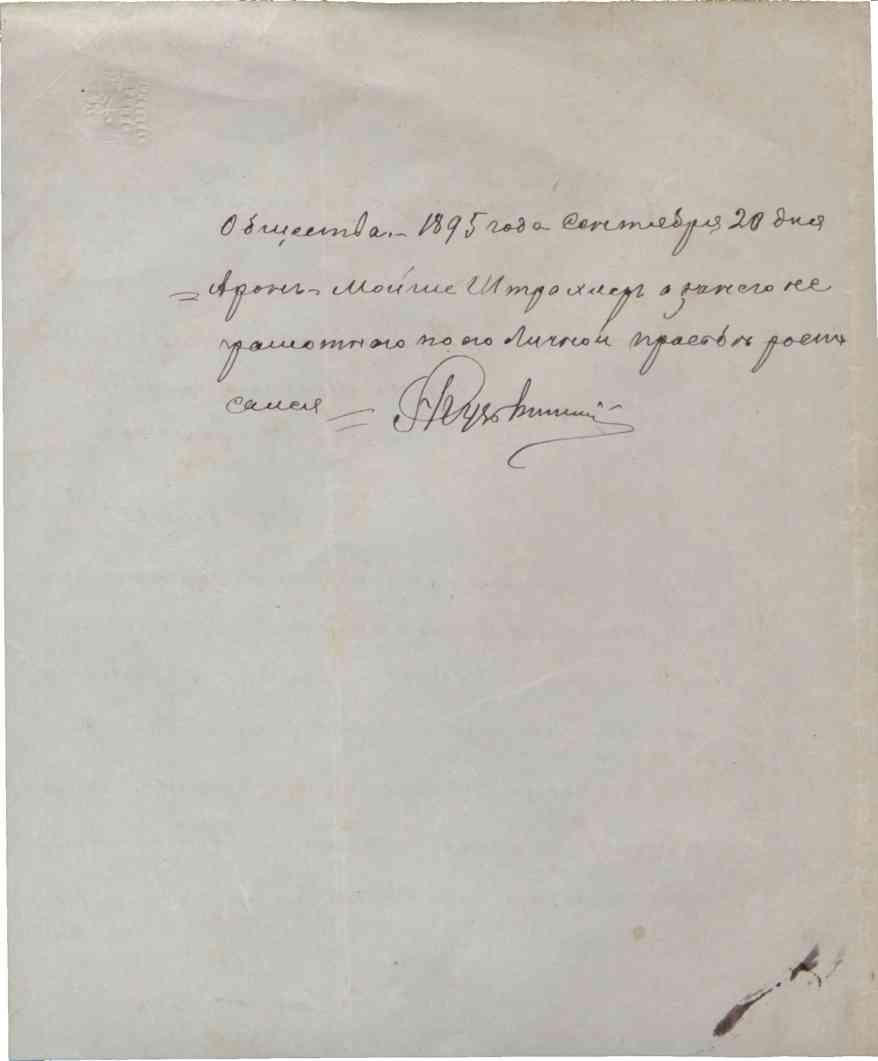 Общества.- 1895 года Сентября 20 дня
= Аронъ-Мойше Штрахлеръ а занего не
грамотного по его личной прасьбѣ роспи
салея =